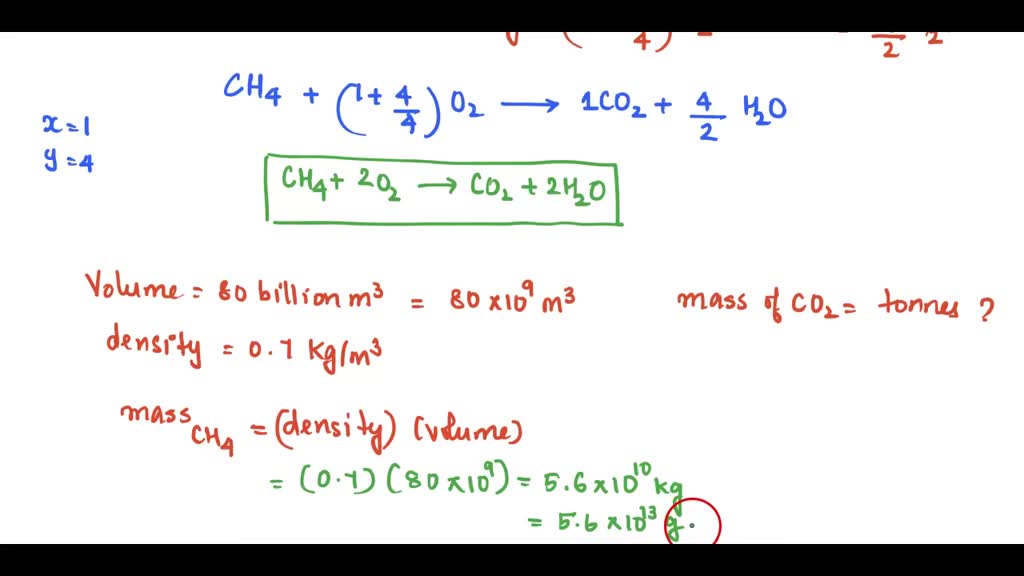 CH4 + (1 + 4/4) O2 → 1CO2 + 4/2 H2O
x = 1
y = 4
CH4 + 2O2 → CO2 + 2H2O
Volume = 80 billion m³ = 80 × 10⁹ m³
mass of CO2 = tonnes ?
density = 0.7 kg/m³
mass CH4 = (density) (volume)
= (0.7) (80 × 10⁹) = 5.6 × 10¹⁰ kg
= 5.6 × 10¹³ g